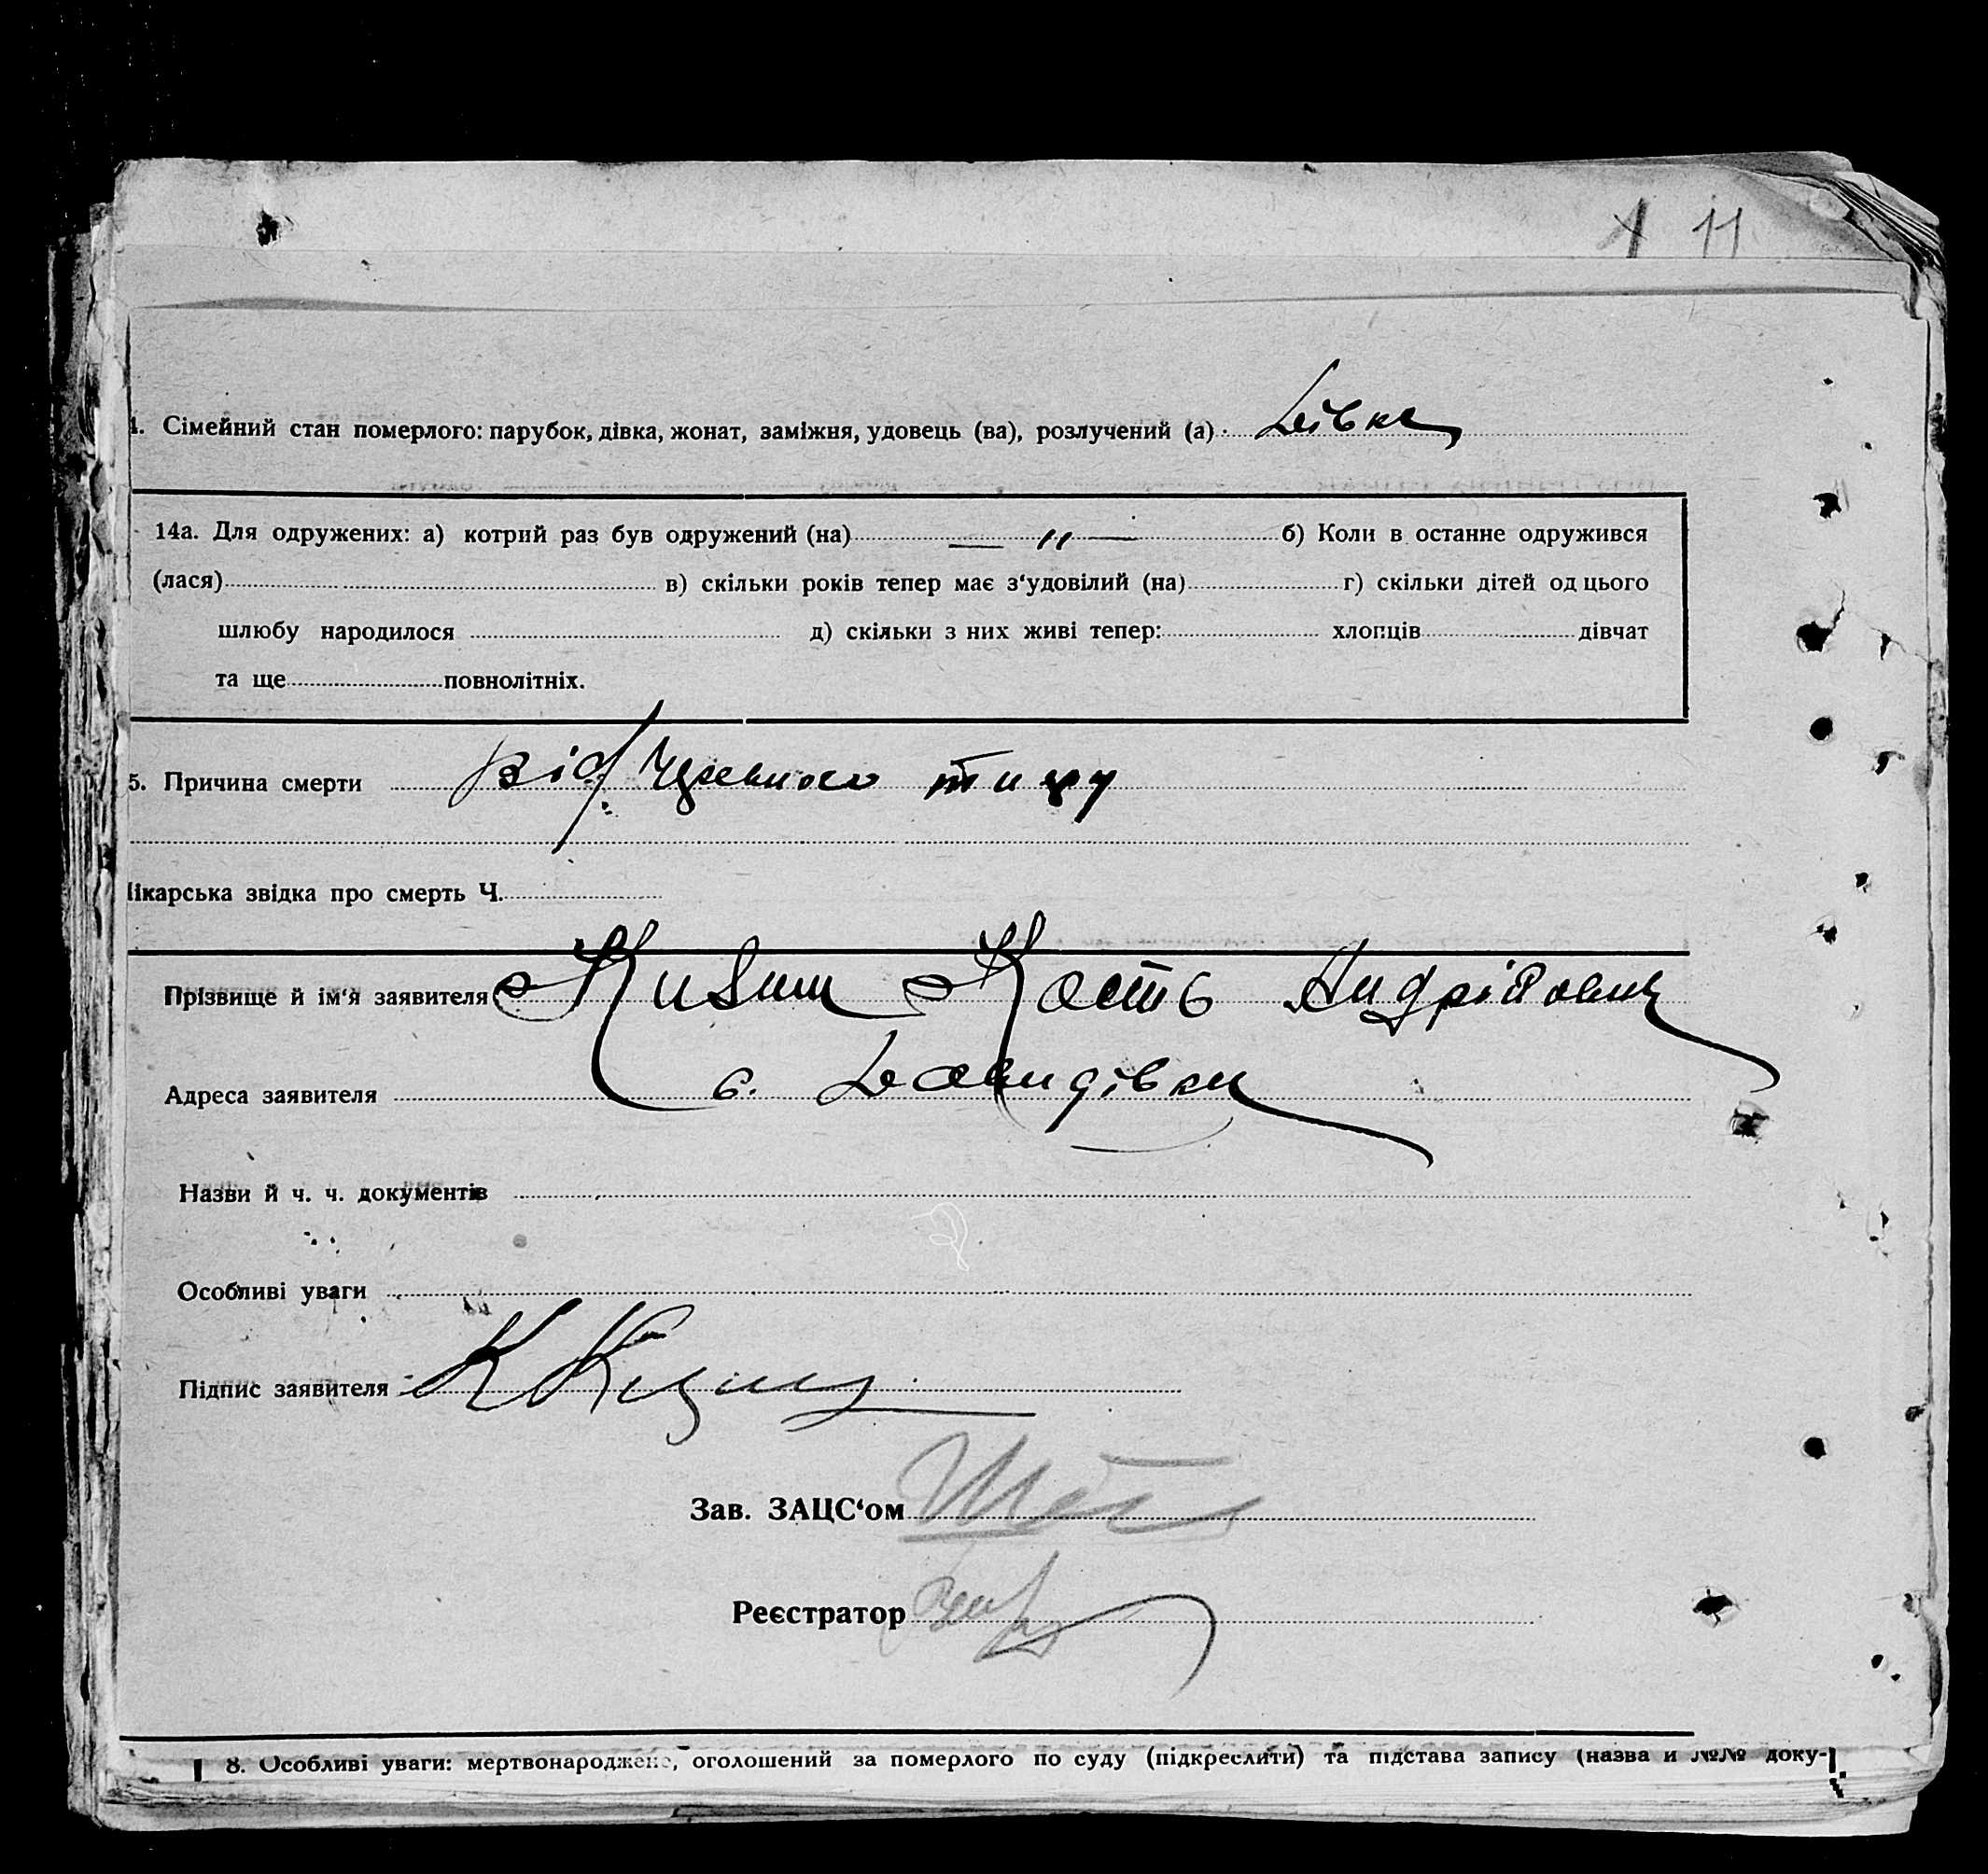 11
4. Сімейний стан померлого: парубок, дівка, жонат, заміжня, удовець (ва), розлучений (а) Дівка
14а. Для одружених: а) котрий раз був одружений (на) — „ — б) Коли в останне одружився
(лася) в) скільки років тепер має з‘удовілий (на) г) скільки дітей од цього
шлюбу народилося д) скільки з них живі тепер: хлопців дівчат
та ще повнолітніх.
5. Причина смерти від черевного тифу
Лікарська звідка про смерть Ч.
Прізвище й ім‘я заявителя Кизим Кость Андрійович
Адреса заявителя с. Давидівки
Назви й ч. ч. документів
Особливі уваги
Підпис заявителя К Кизим
Зав. ЗАЦС‘ом
Реєстратор
8. Особливі уваги: мертвонароджене, оголошений за померлого по суду (підкреслити) та підстава запису (назва и №№ доку-